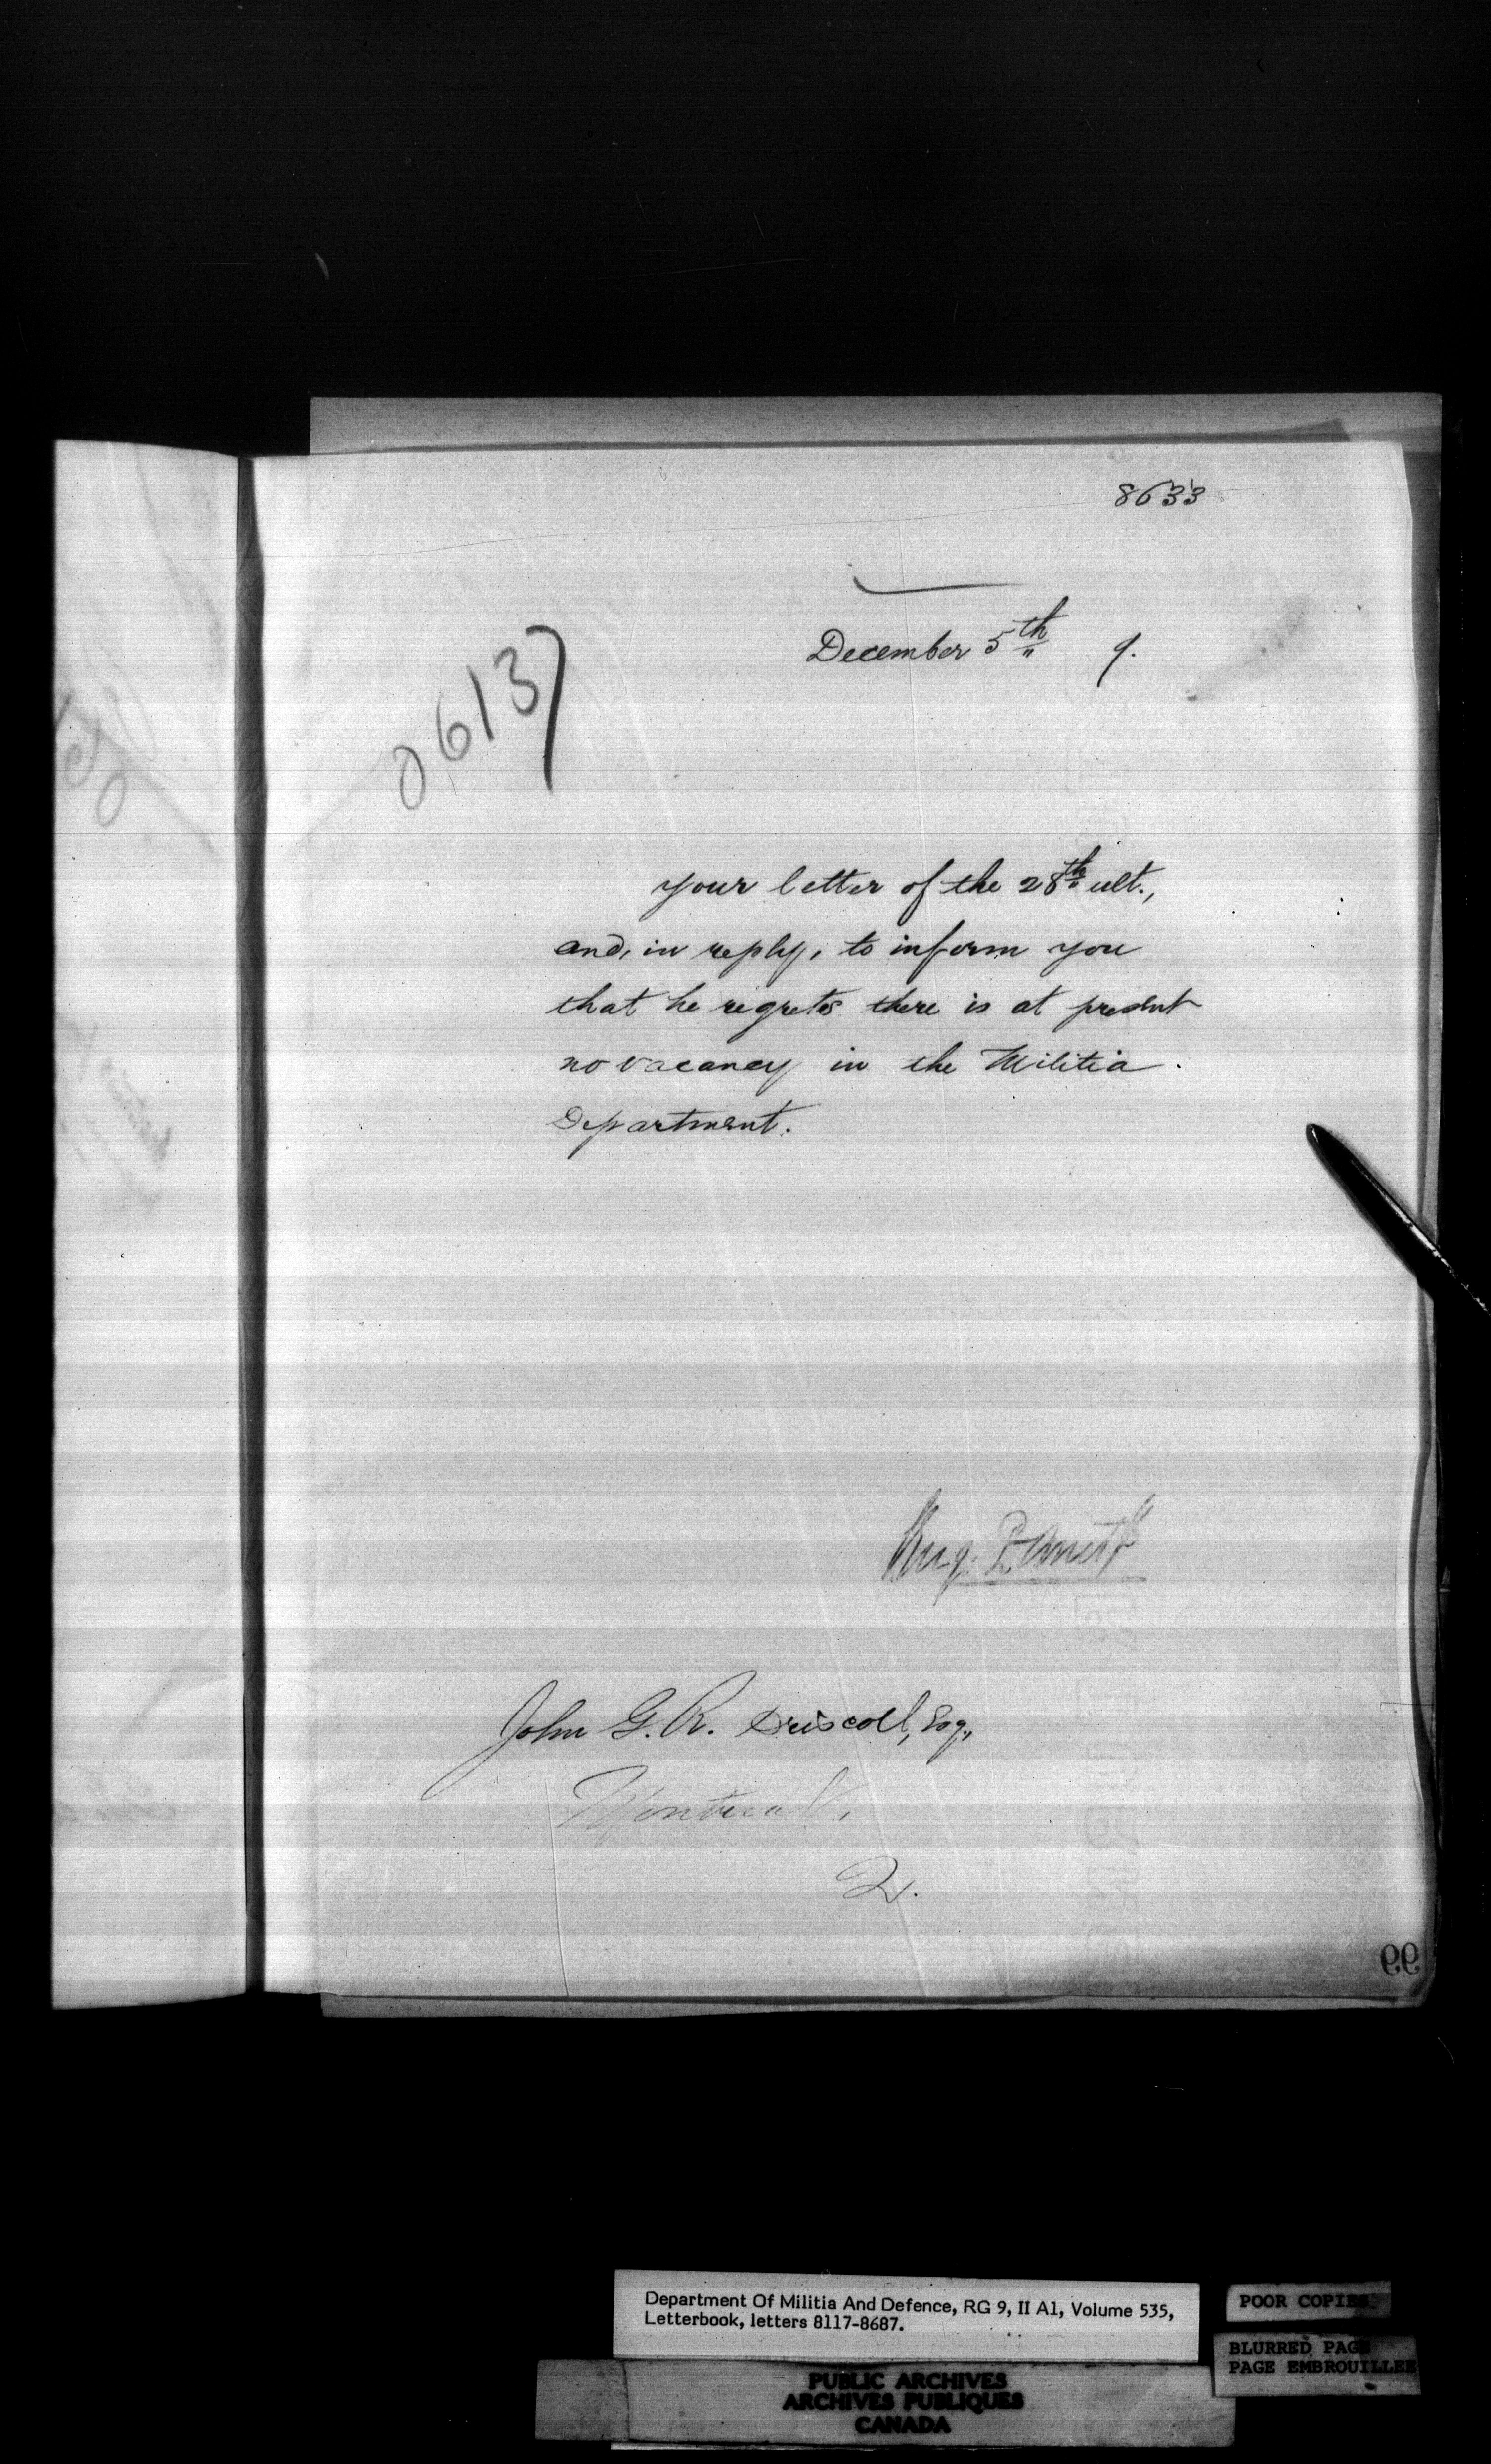 8633
December 5th 9.
06137
your letter of the 28th ult.,
and, in reply, to inform you
that he regrets there is at present
no vacancy in the Militia
Department.
John G. R. Driscoll, Esq.,
Montreal,
2.
99
Department Of Militia And Defence, RG 9, II A1, Volume 535,
Letterbook, letters 8117-8687.
POOR COPIES
BLURRED PAGE
PAGE EMBROUILLEE
PUBLIC ARCHIVES
ARCHIVES PUBLIQUES
CANADA